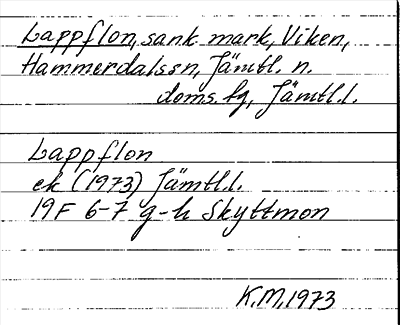 Lappflon, sank mark, Viken,
Hammerdalssn, Jämtl. n.
doms. fg, Jämtl.l.
Lappflon
ek (1973) Jämtl.l.
19F 6-7 g-h Skyttmon
K.M. 1973